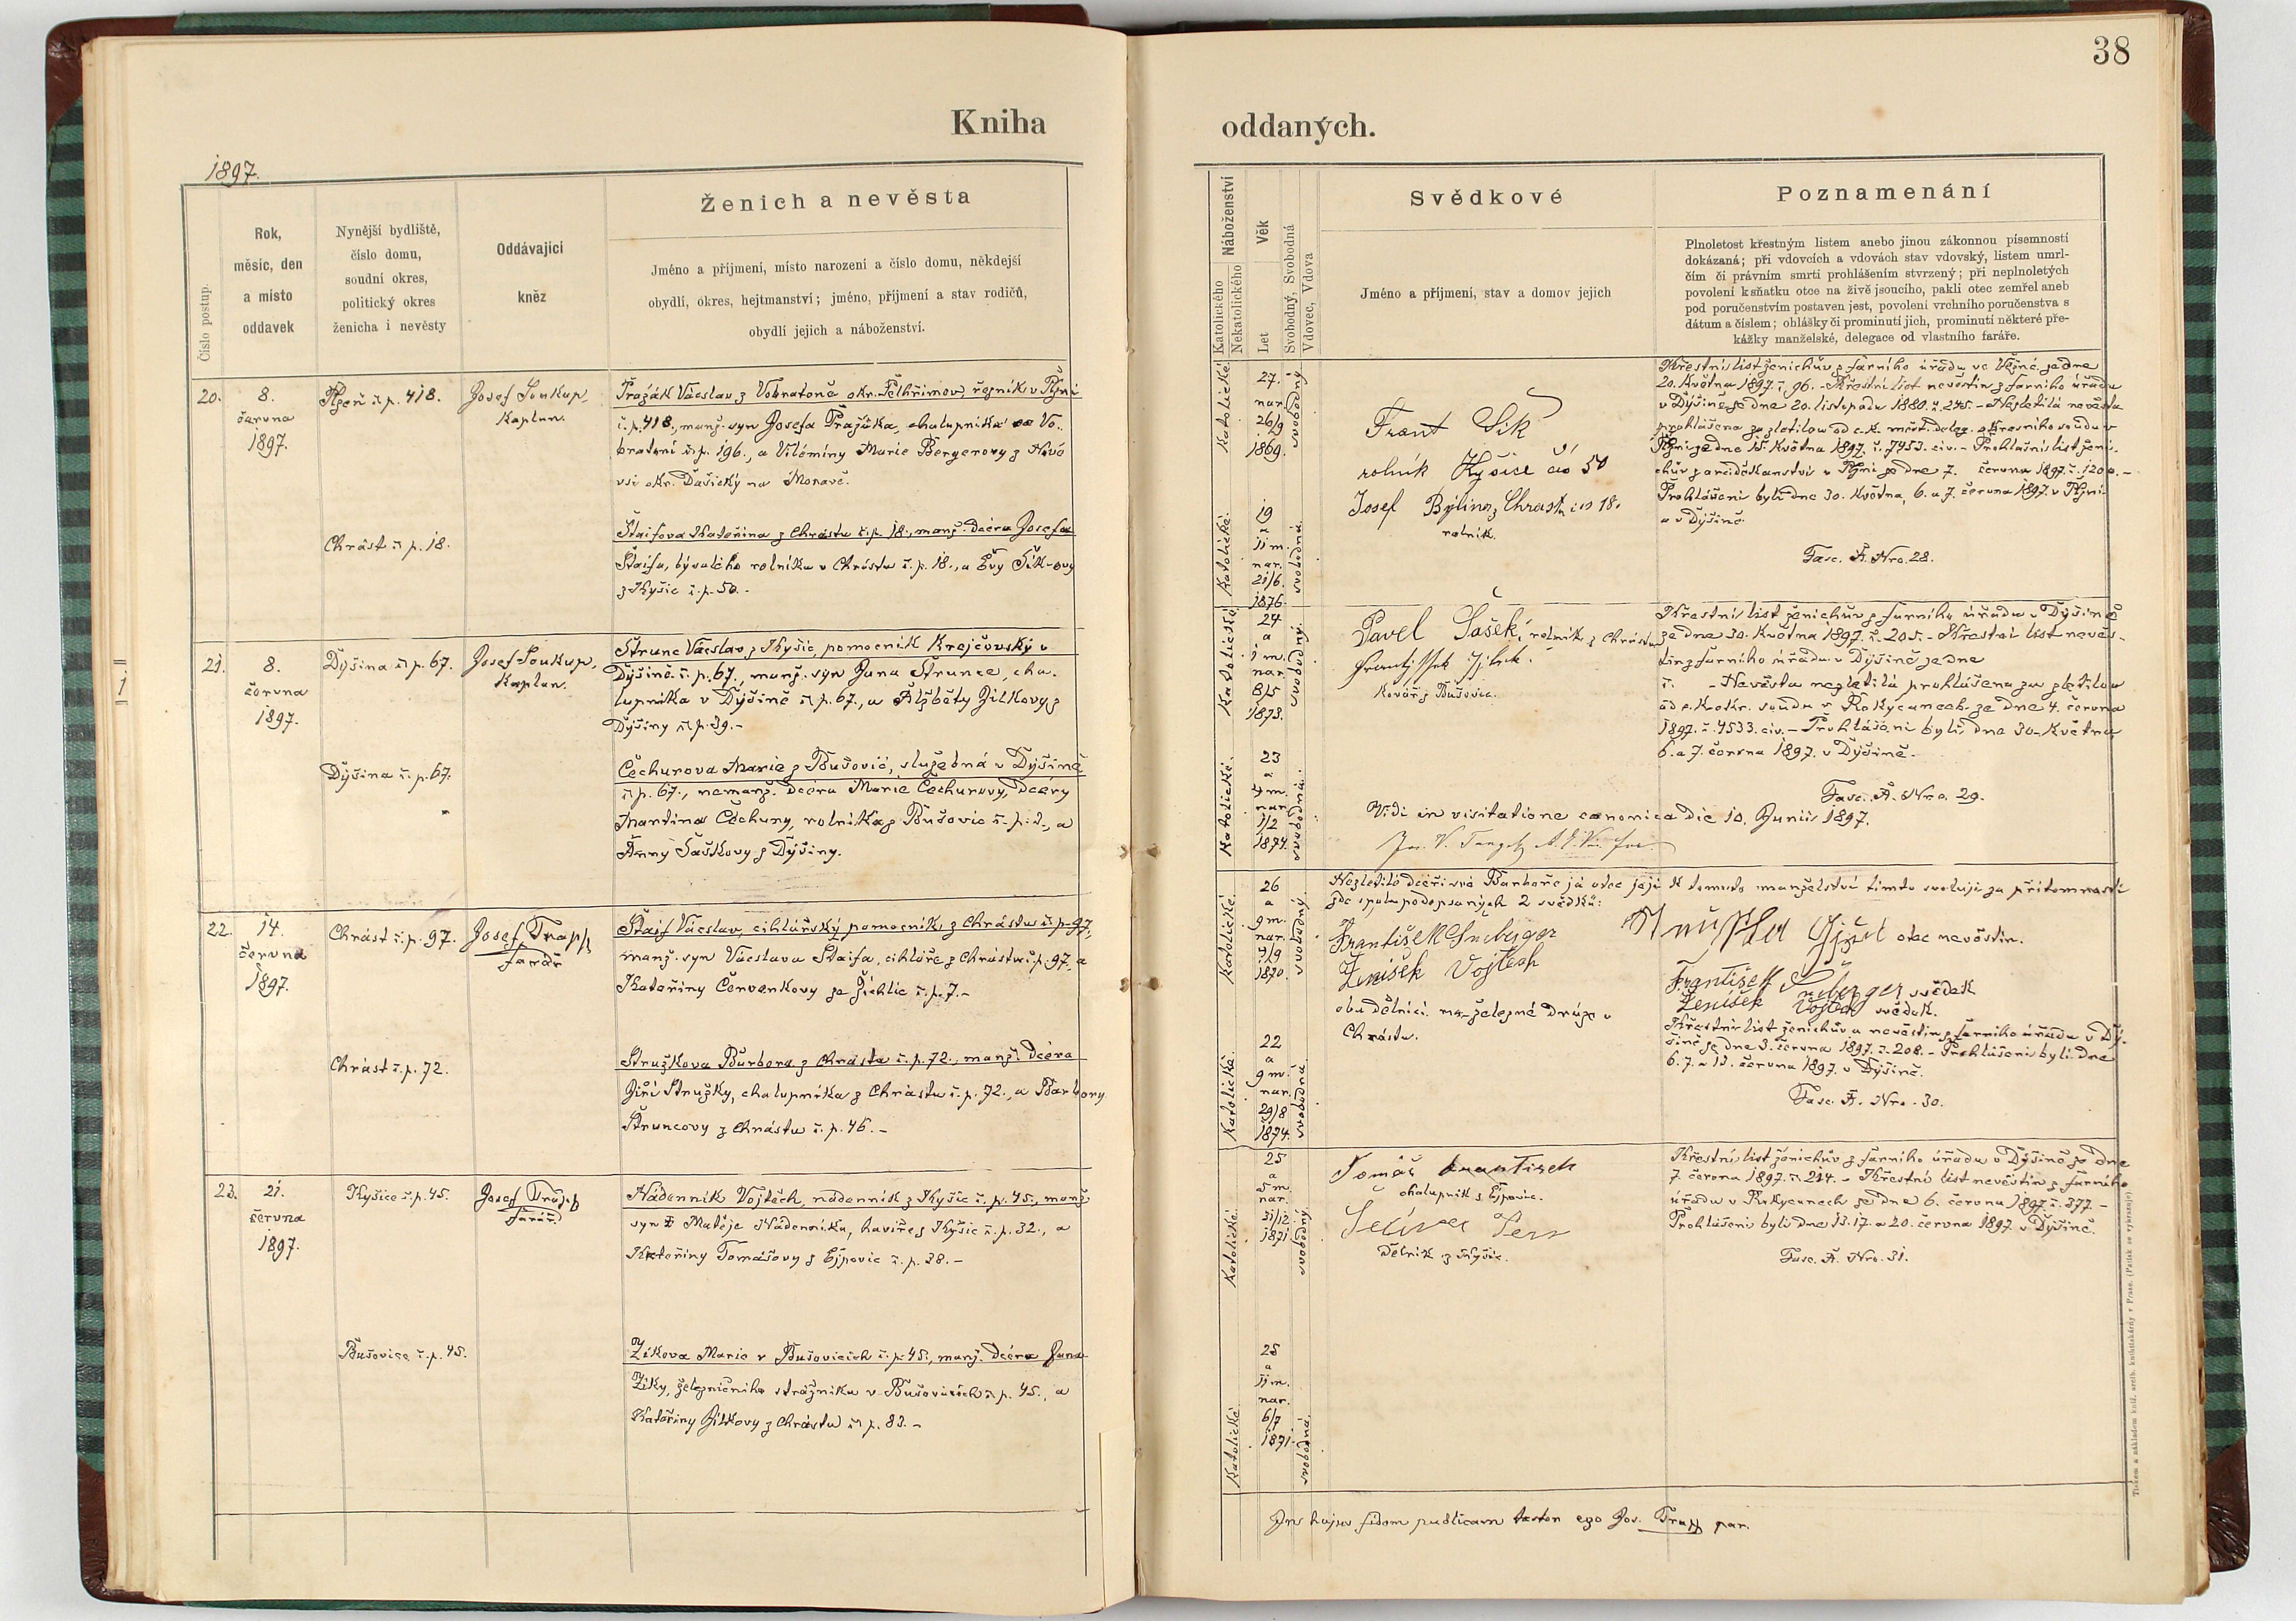 38
Kniha
oddaných.
1897.
Číslo postup.
Rok,
měsíc, den
a místo
oddavek
Nynější bydliště,
číslo domu,
soudní okres,
politický okres
ženicha i nevěsty
Oddávající
kněz
Ženich a nevěsta
Jméno a příjmení, místo narození a číslo domu, někdejší
obydlí, okres, hejtmanství; jméno, příjmení a stav rodičů,
obydlí jejich a náboženství.
Náboženství
Katolického
Nekatolického
Věk
Let
Svobodný, Svobodná
Vdovec, Vdova
Svědkové
Jméno a příjmení, stav a domov jejich
Poznamenání
Plnoletost křestným listem anebo jinou zákonnou písemností
dokázaná; při vdovcích a vdovách stav vdovský, listem umrl-
čím či právním smrti prohlášením stvrzený; při neplnoletých
povolení k sňatku otce na živě jsoucího, pakli otec zemřel aneb
pod poručenstvím postaven jest, povolení vrchního poručenstva s
dátum a číslem; ohlášky či prominutí jich, prominutí některé pře-
kážky manželské, delegace od vlastního faráře.
20.
8.
června
1897.
Plzeň č. p. 418.
Josef Soukup,
kaplan.
Pražák Václav z Vobrataně okr. Pelhřimov, řezník v Plzni
č. p. 418., manž. syn Josefa Pražáka, chalupníka ve Vo-
bratani č. p. 196., a Vilémíny Marie Bergerovy z Nové
vsi okr. Dašický na Moravě.
Chrást č. p. 18.
Štaifova Kateřina z Chrástu č. p. 18., manž. dcera Josefa
Štaifa, bývalého rolníka v Chrástu č. p. 18., a Evy Šik-ovy
z Kyšic č. p. 50.-
Katolické.
27.
nar.
26/9
1869.
svobodný.
Katolické.
19
a
11 m.
nar.
21/6.
1876.
svobodná.
Frant Sik
rolník Kyšice čís 50
Josef Bylina z Chrástu čis 18.
rolník.
Křestní list ženichův z farního úřadu ve Věžné ze dne
20. května 1897. č. 96.- Křestní list nevěstin z farního úřadu
v Dýšině ze dne 20. listopadu 1880. č. 245.- Nezletilá nevěsta
prohlášena za zletilou od c. k. měst. deleg. okresního soudu v
Plzni ze dne 15. května 1897. č. 7453. civ.- Prohlašní list ženi-
chův z arciděkanství v Plzni ze dne 7. června 1897. č. 1200.-
Prohlášeni byli dne 30. května, 6. a 7. června 1897. v Plzni
a v Dýšině.
Fasc. A. Nro. 28.
21.
8.
června
1897.
Dýšina č. p. 67.
Josef Soukup,
kaplan.
Strunc Václav z Kyšic, pomocník krejčovský v
Dýšině č. p. 67., manž. syn Jana Strunce, cha-
lupníka v Dýšině č. p. 67., a Alžběty Jílkovy z
Dýšiny č. p. 39.-
Dýšina č. p. 67.
Čechurova Marie z Bušovic, služebná v Dýšině
č. p. 67., nemanž. dcera Marie Čechurovy, dcery
Martina Čechury, rolníka z Bušovic č. p. 2., a
Anny Šaškovy z Dýšiny.
Katolické.
24
a
1 m.
nar.
8/5
1873.
svobodný.
Katolické.
23
a
4 m.
nar.
1/2
1874.
svobodná.
Pavel Šašek, rolník z Chrástu
kovář z Bušovic.
Křestní list ženichův z farního úřadu v Dýšině
ze dne 30. května 1897. č. 205.- Křestní list nevěs-
tin z farního úřadu v Dýšině ze dne
č. - Nevěsta nezletilá prohlášena za zletilou
od c. k. okr. soudu v Rokycanech ze dne 4. června
1897. č. 4533. civ.- Prohlášeni byli dne 30. května
6. a 7. června 1897. v Dýšině.
Fasc. A. Nro. 29.
Vidi in visitatione canonica die 10. Junii 1897.
22.
14.
června
1897.
Chrást č. p. 97.
Josef Trapp
farář
Štaif Václav, cihlářský pomocník, z Chrástu č. p. 97,
manž. syn Václava Štaifa, cihláře z Chrástu č. p. 97, a
Kateřiny Červenkovy ze Žichlic č. p. 7.-
Chrást č. p. 72.
Stružkova Barbora z Chrástu č. p. 72., manž. dcera
Jiří Stružky, chalupníka z Chrástu č. p. 72., a Barbory
Štruncovy z Chrástu č. p. 46.-
Katolické.
26
a
9 m.
nar.
4/9
1870.
svobodný.
Katolické.
22
a
9 m.
nar.
29/8
1874.
svobodná.
Nezletilé dceři své Barboře já otec její k tomuto manželství tímto svoluji za přítomnosti
zde spolupodepsaných 2 svědků:
otec nevěstin.
František Sneberger
Ženíšek Vojtěch
oba dělníci na železné dráze v
Chrástu.
František Sneberger svědek
Ženíšek Vojtěch svědek.
Křestní list ženichův a nevěstin z farního úřadu v Dý-
šině ze dne 3. června 1897. č. 208.- Prohlášeni byli dne
6. 7. a 13. června 1897. v Dýšině.
Fasc. A. Nro. 30.
23.
21.
června
1897.
Kyšice č. p. 45.
Josef Trapp
farář.
Nádenník Vojtěch, nádenník z Kyšic č. p. 45., manž.
syn † Matěje Nádenníka, havíře z Kyšic č. p. 32., a
Kateřiny Tomášovy z Ejpovic č. p. 38.-
Bušovice č. p. 45.
Zíkova Marie v Bušovicích č. p. 45., manž. dcera Jana
Zíky, železničního strážníka v Bušovicích č. p. 45., a
Kateřiny Jílkovy z Chrástu č. p. 83.-
Katolické.
25
a
5 m.
nar.
31/12
1871
svobodný.
Katolické.
25
a
11 m.
nar.
6/7
1871.
svobodná.
Tomáš Frantisek
chalupník z Ejpovic.
dělník z Kyšic.
Křestní list ženichův z farního úřadu v Dýšině ze dne
7. června 1897. č. 214.- Křestní list nevěstin z farního
úřadu v Rokycanech ze dne 6. června 1897. č. 377.-
Prohlášeni byli dne 13. 17. a 20. června 1897. v Dýšině.
Fasc. A. Nro. 31.
In hujus fidem publicam testor ego Jos. Trapp par.